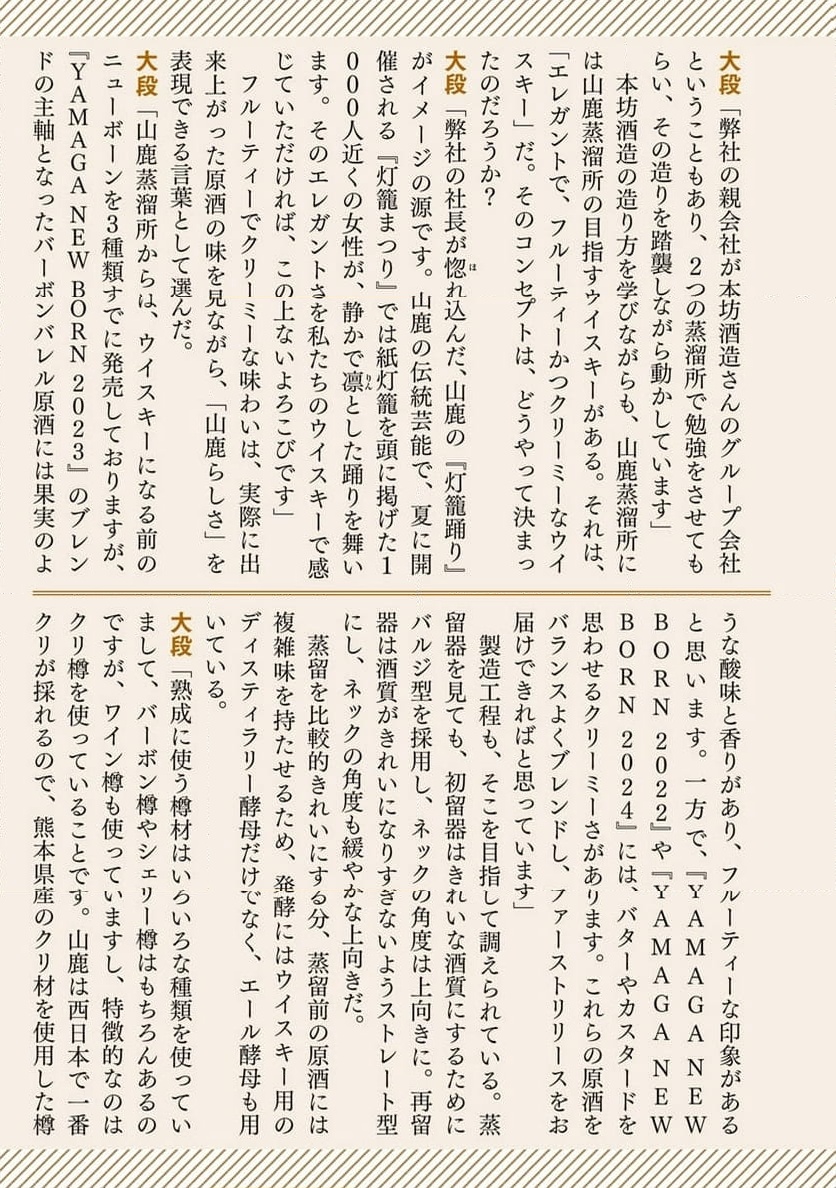 大段「弊社の親会社が本坊酒造さんのグループ会社
ということもあり、2つの蒸溜所で勉強をさせても
らい、その造りを踏襲しながら動かしています」
　本坊酒造の造り方を学びながらも、山鹿蒸溜所に
は山鹿蒸溜所の目指すウイスキーがある。それは、
「エレガントで、フルーティーかつクリーミーなウイ
スキー」だ。そのコンセプトは、どうやって決まっ
たのだろうか？
大段「弊社の社長が惚れ込んだ、山鹿の『灯籠踊り』
がイメージの源です。山鹿の伝統芸能で、夏に開
催される『灯籠まつり』では紙灯籠を頭に掲げた1
000人近くの女性が、静かで凛とした踊りを舞い
ます。そのエレガントさを私たちのウイスキーで感
じていただければ、この上ないよろこびです」
　フルーティーでクリーミーな味わいは、実際に出
来上がった原酒の味を見ながら、「山鹿らしさ」を
表現できる言葉として選んだ。
大段「山鹿蒸溜所からは、ウイスキーになる前の
ニューボーンを3種類すでに発売しておりますが、
『YAMAGA NEW BORN 2023』のブレン
ドの主軸となったバーボンバレル原酒には果実のよ
うな酸味と香りがあり、フルーティーな印象がある
と思います。一方で、『YAMAGA NEW
BORN 2022』や『YAMAGA NEW
BORN 2024』には、バターやカスタードを
思わせるクリーミーさがあります。これらの原酒を
バランスよくブレンドし、ファーストリリースをお
届けできればと思っています」
　製造工程も、そこを目指して調えられている。蒸
留器を見ても、初留器はきれいな酒質にするために
バルジ型を採用し、ネックの角度は上向きに。再留
器は酒質がきれいになりすぎないようストレート型
にし、ネックの角度も緩やかな上向きだ。
　蒸留を比較的きれいにする分、蒸留前の原酒には
複雑味を持たせるため、発酵にはウイスキー用の
ディスティラリー酵母だけでなく、エール酵母も用
いている。
大段「熟成に使う樽材はいろいろな種類を使ってい
まして、バーボン樽やシェリー樽はもちろんあるの
ですが、ワイン樽も使っていますし、特徴的なのは
クリ樽を使っていることです。山鹿は西日本で一番
クリが採れるので、熊本県産のクリ材を使用した樽